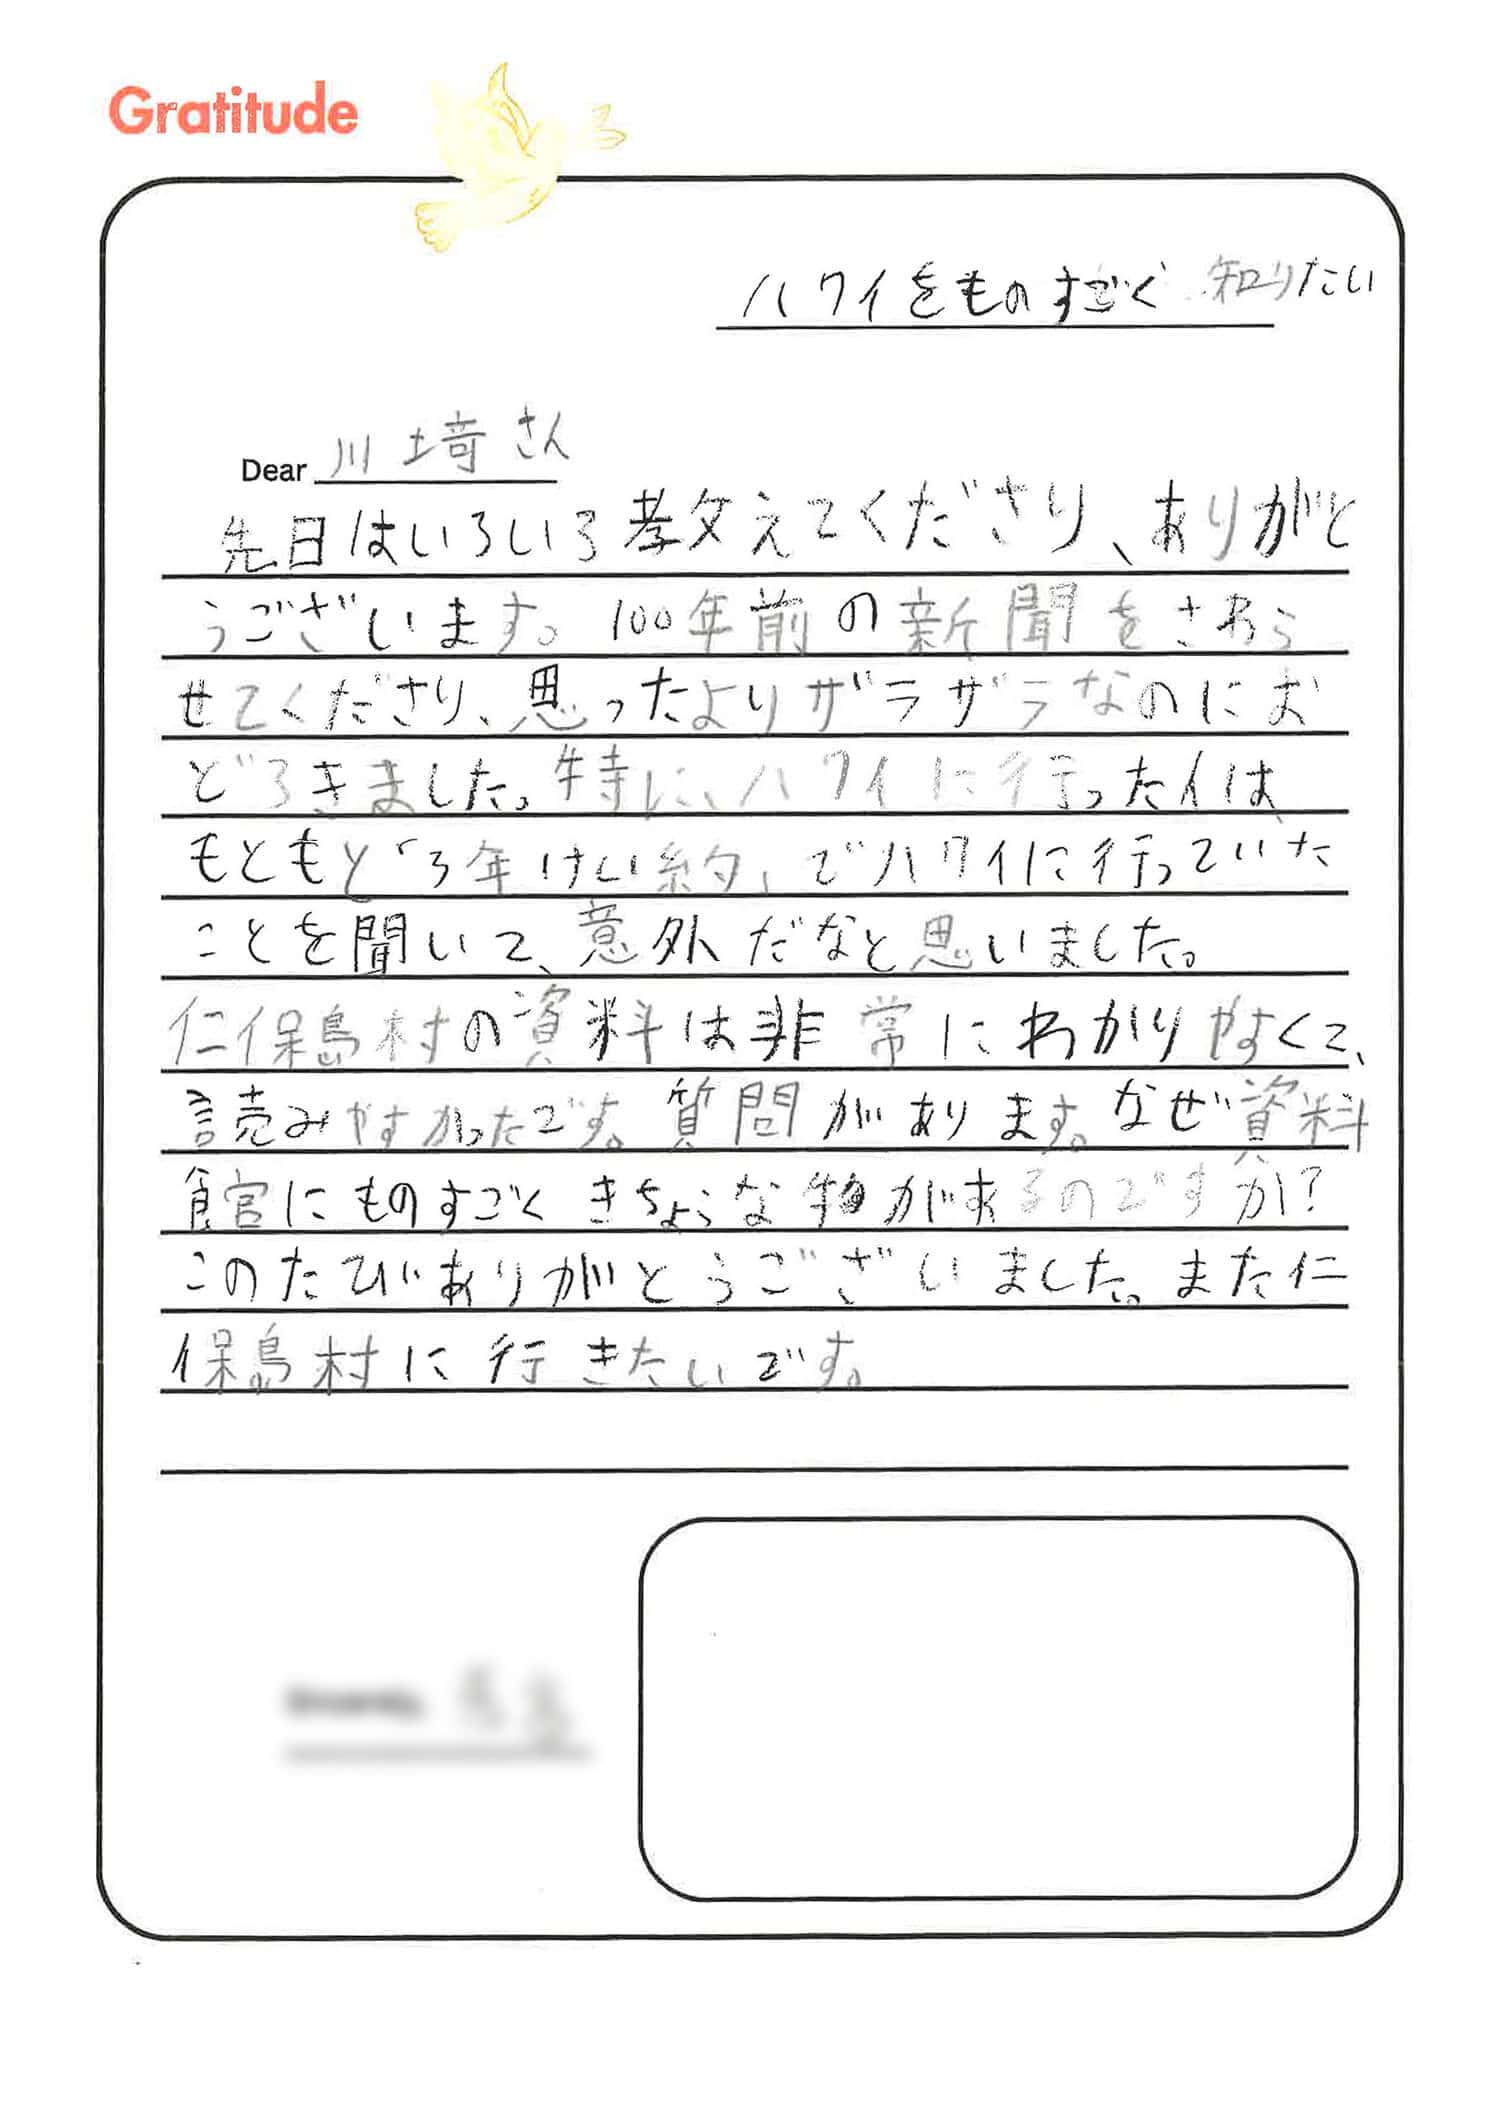 Gratitude
ハワイをものすごく知りたい
Dear 川埼さん
先日はいろいろ教えてくださり、ありがと
うございます。100年前の新聞をさわら
せてくださり、思ったよりザラザラなのにお
どろきました。特に、ハワイに行った人は
もともと「3年けい約」でハワイに行っていた
ことを聞いて、意外だなと思いました。
仁保島村の資料は非常にわかりやすくて、
読みやすかったです。質問があります。なぜ資料
館にものすごくきちょうな物があるのですか?
このたびありがとうございました。また仁
保島村に行きたいです。